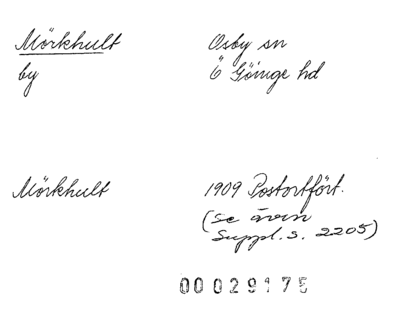 Mörkhult Osby sn
by Ö Göinge hd
Mörkhult 1909 Postortfört.
(se även
Suppl. s. 2205)
00029175